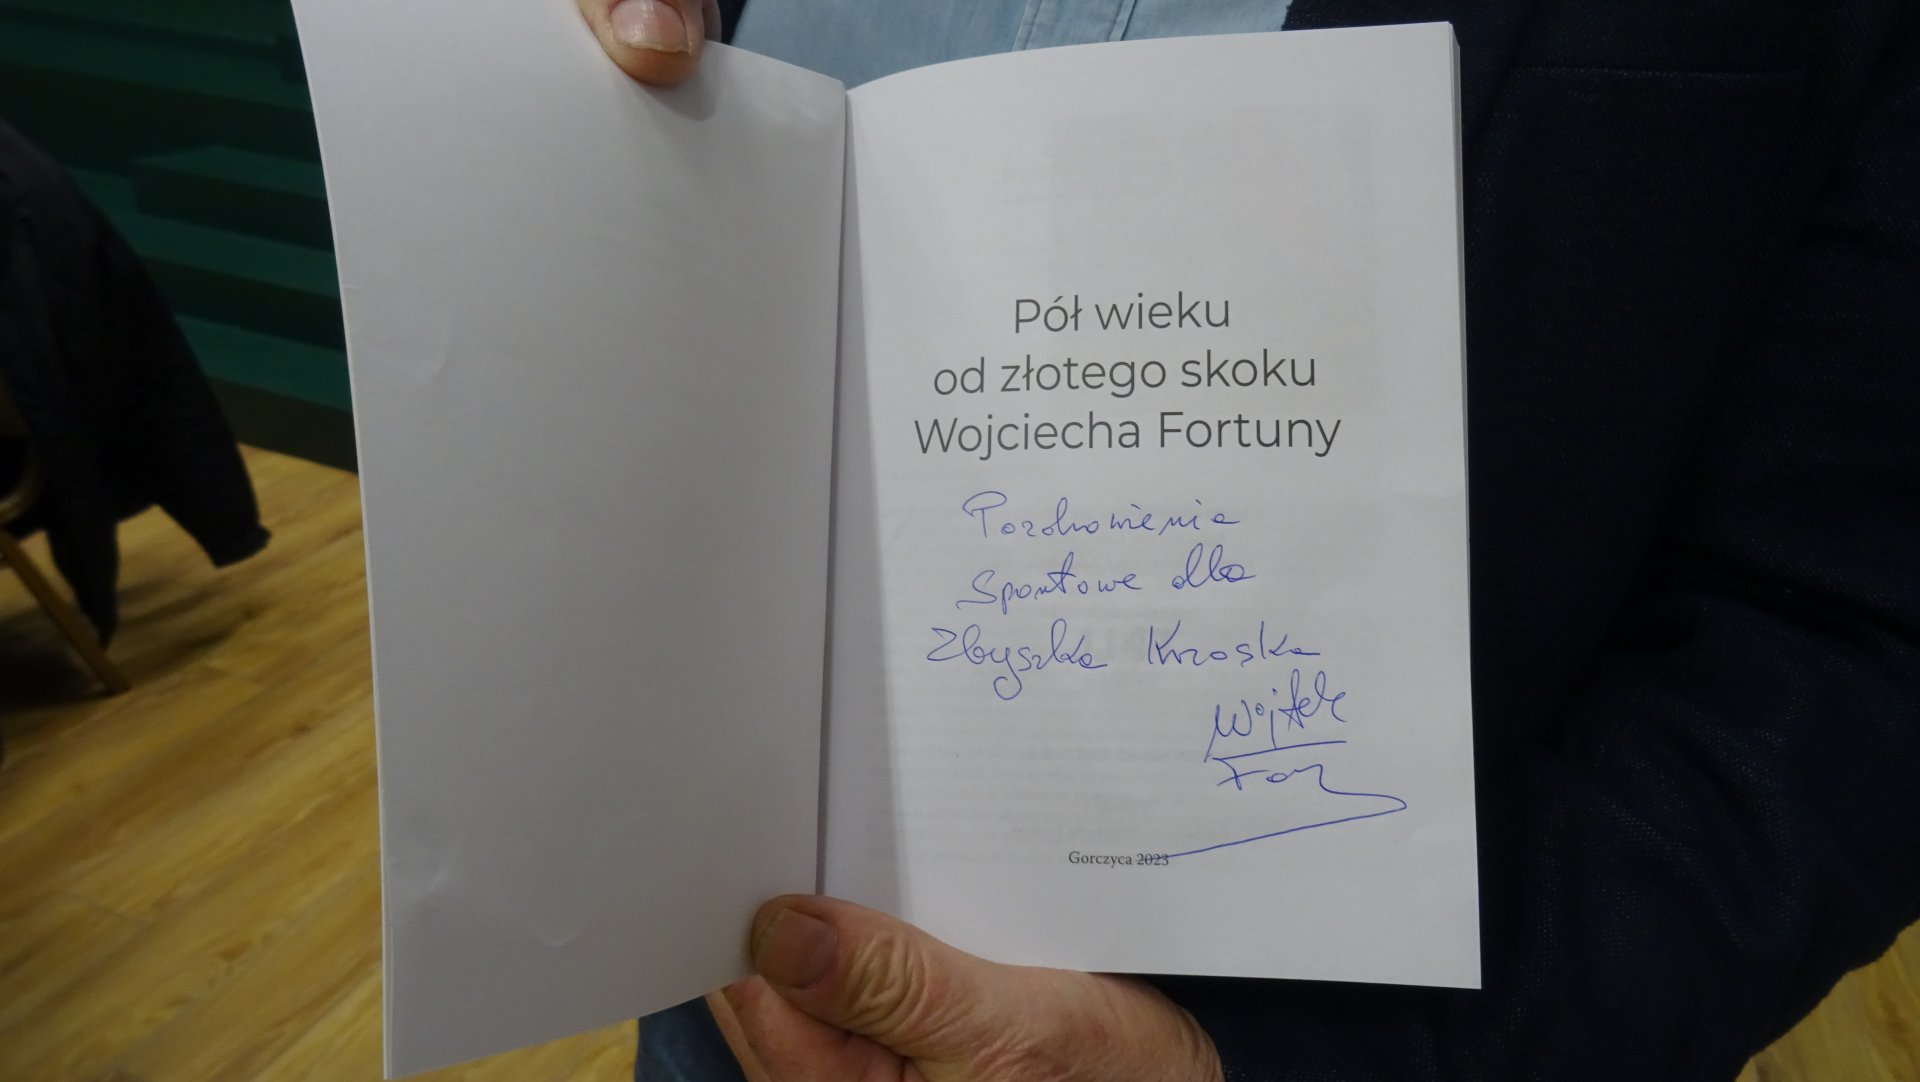 Pół wieku
od złotego skoku
Wojciecha Fortuny
Pozdrowienia
Sportowe dla
Zbyszka Krzoska
Wojtek
For
Gorczyca 2023